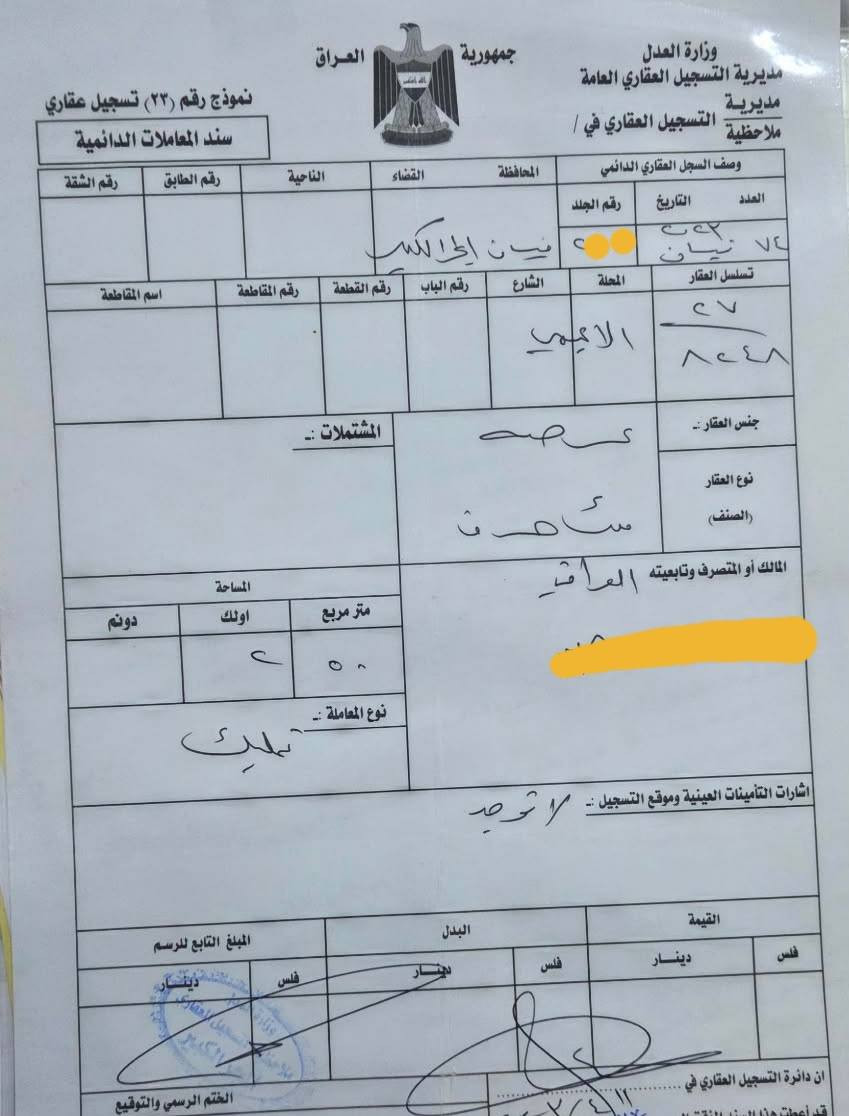 وزارة العدل
مديرية التسجيل العقاري العامة
مديرية
ملاحظية
التسجيل العقاري في /
جمهورية العراق
نموذج رقم (٢٣) تسجيل عقاري
سند المعاملات الدائمية
وصف السجل العقاري الدائمي
المحافظة القضاء الناحية رقم الطابق رقم الشقة
العدد التاريخ رقم الجلد
٧٤ نيسان ٢٠٢٣ ٢
الكبير
تسلسل العقار المحلة الشارع رقم الباب رقم القطعة رقم المقاطعة اسم المقاطعة
٢٧
٨٢٤٨
جنس العقار :ـ عرصه
المشتملات :ـ
نوع العقار
(الصنف)
المالك أو المتصرف وتابعيته العراقيه
المساحة
متر مربع اولك دونم
٥٠ ٢
نوع المعاملة :ـ
تمليك
اشارات التأمينات العينية وموقع التسجيل :ـ لا توجد
القيمة البدل المبلغ التابع للرسم
فلس دينـــار فلس دينـــار فلس دينـــار
ملاحظية التسجيل العقاري
ان دائرة التسجيل العقاري في
الختم الرسمي والتوقيع